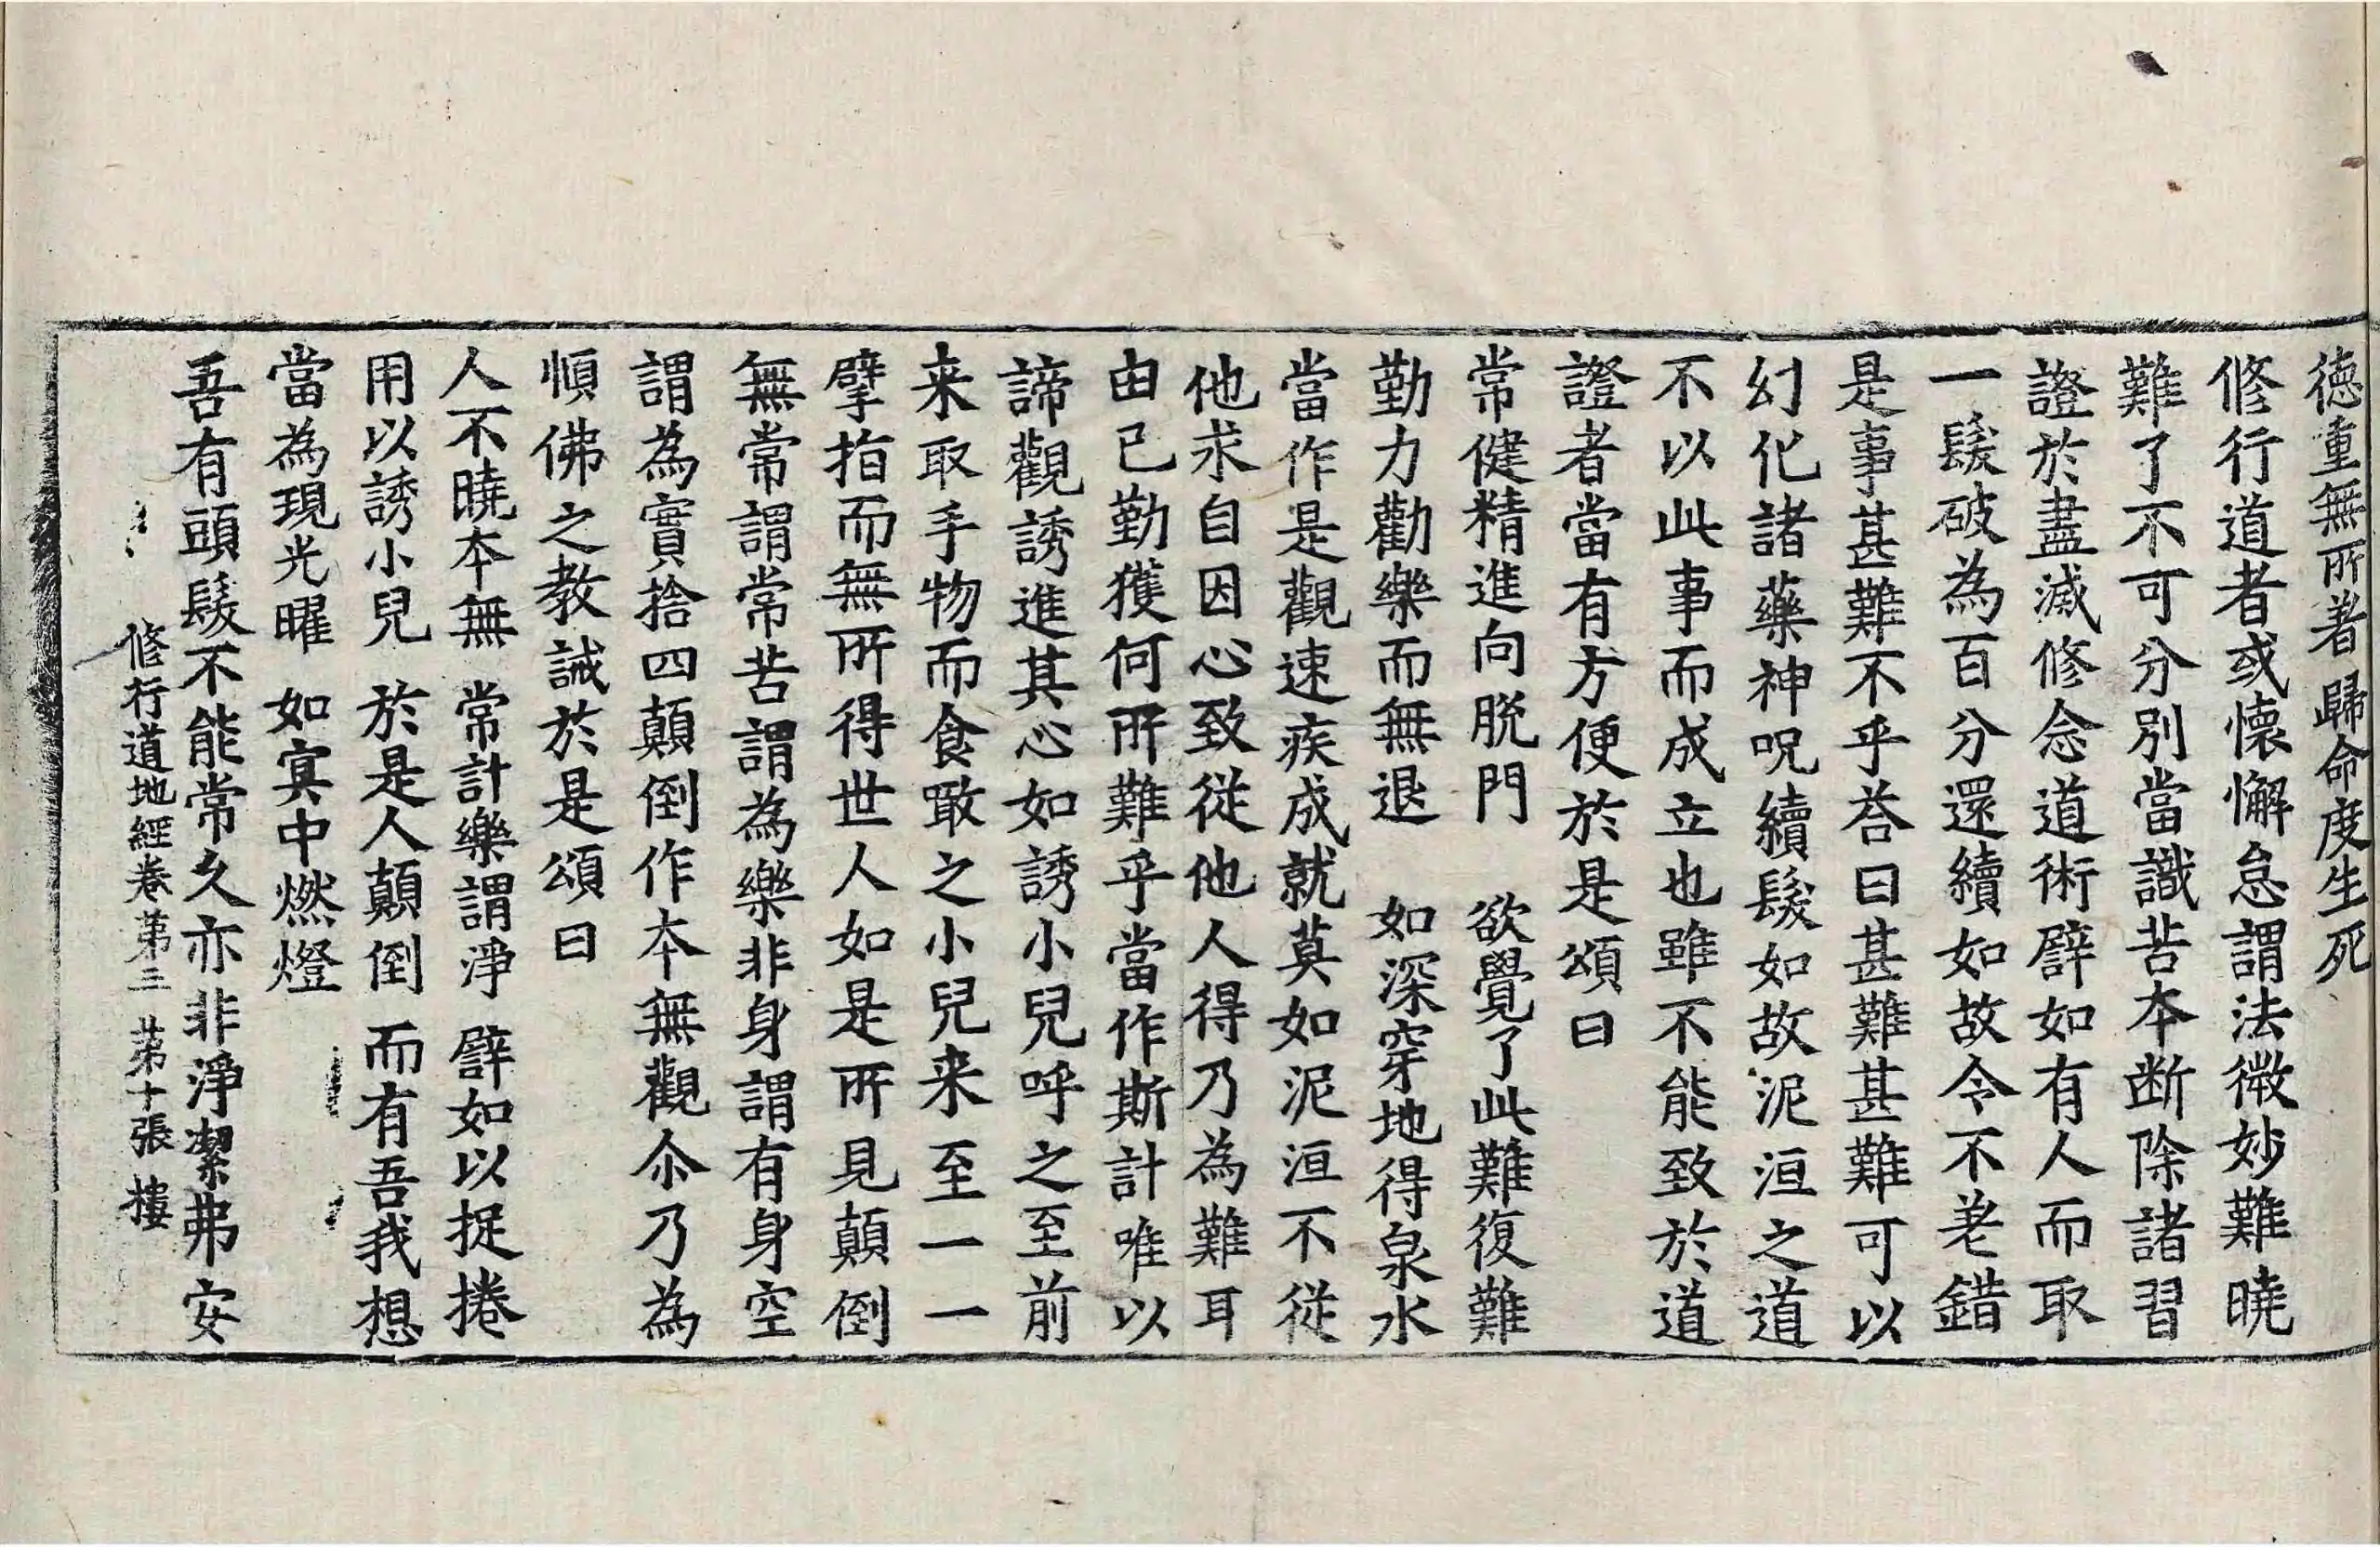 徳重無所著　歸命度生死
修行道者或懷懈怠謂法微妙難曉
難了不可分別當識苦本断除諸習
證於盡滅修念道術譬如有人而取
一髮破為百分還續如故令不差錯
是事甚難不乎荅曰甚難甚難可以
幻化諸藥神呪續髮如故泥洹之道
不以此事而成立也雖不能致於道
證者當有方便於是頌曰
常健精進向脱門　欲覺了此難復難
勤力勸樂而無退　如深穿地得泉水
當作是觀速疾成就莫如泥洹不從
他求自因心致從他人得乃為難耳
由已勤獲何所難乎當作斯計唯以
諦觀誘進其心如誘小兒呼之至前
来取手物而食噉之小兒来至一一
擘指而無所得世人如是所見顛倒
無常謂常苦謂為樂非身謂有身空
謂為實捨四顛倒作本無觀尒乃為
順佛之教誡於是頌曰
人不曉本無　常計樂謂淨　譬如以捉捲
用以誘小兒　於是人顛倒　而有吾我想
當為現光曜　如寘中燃燈
吾有頭髮不能常久亦非淨潔弗安
修行道地經卷苐三　苐十張　樓